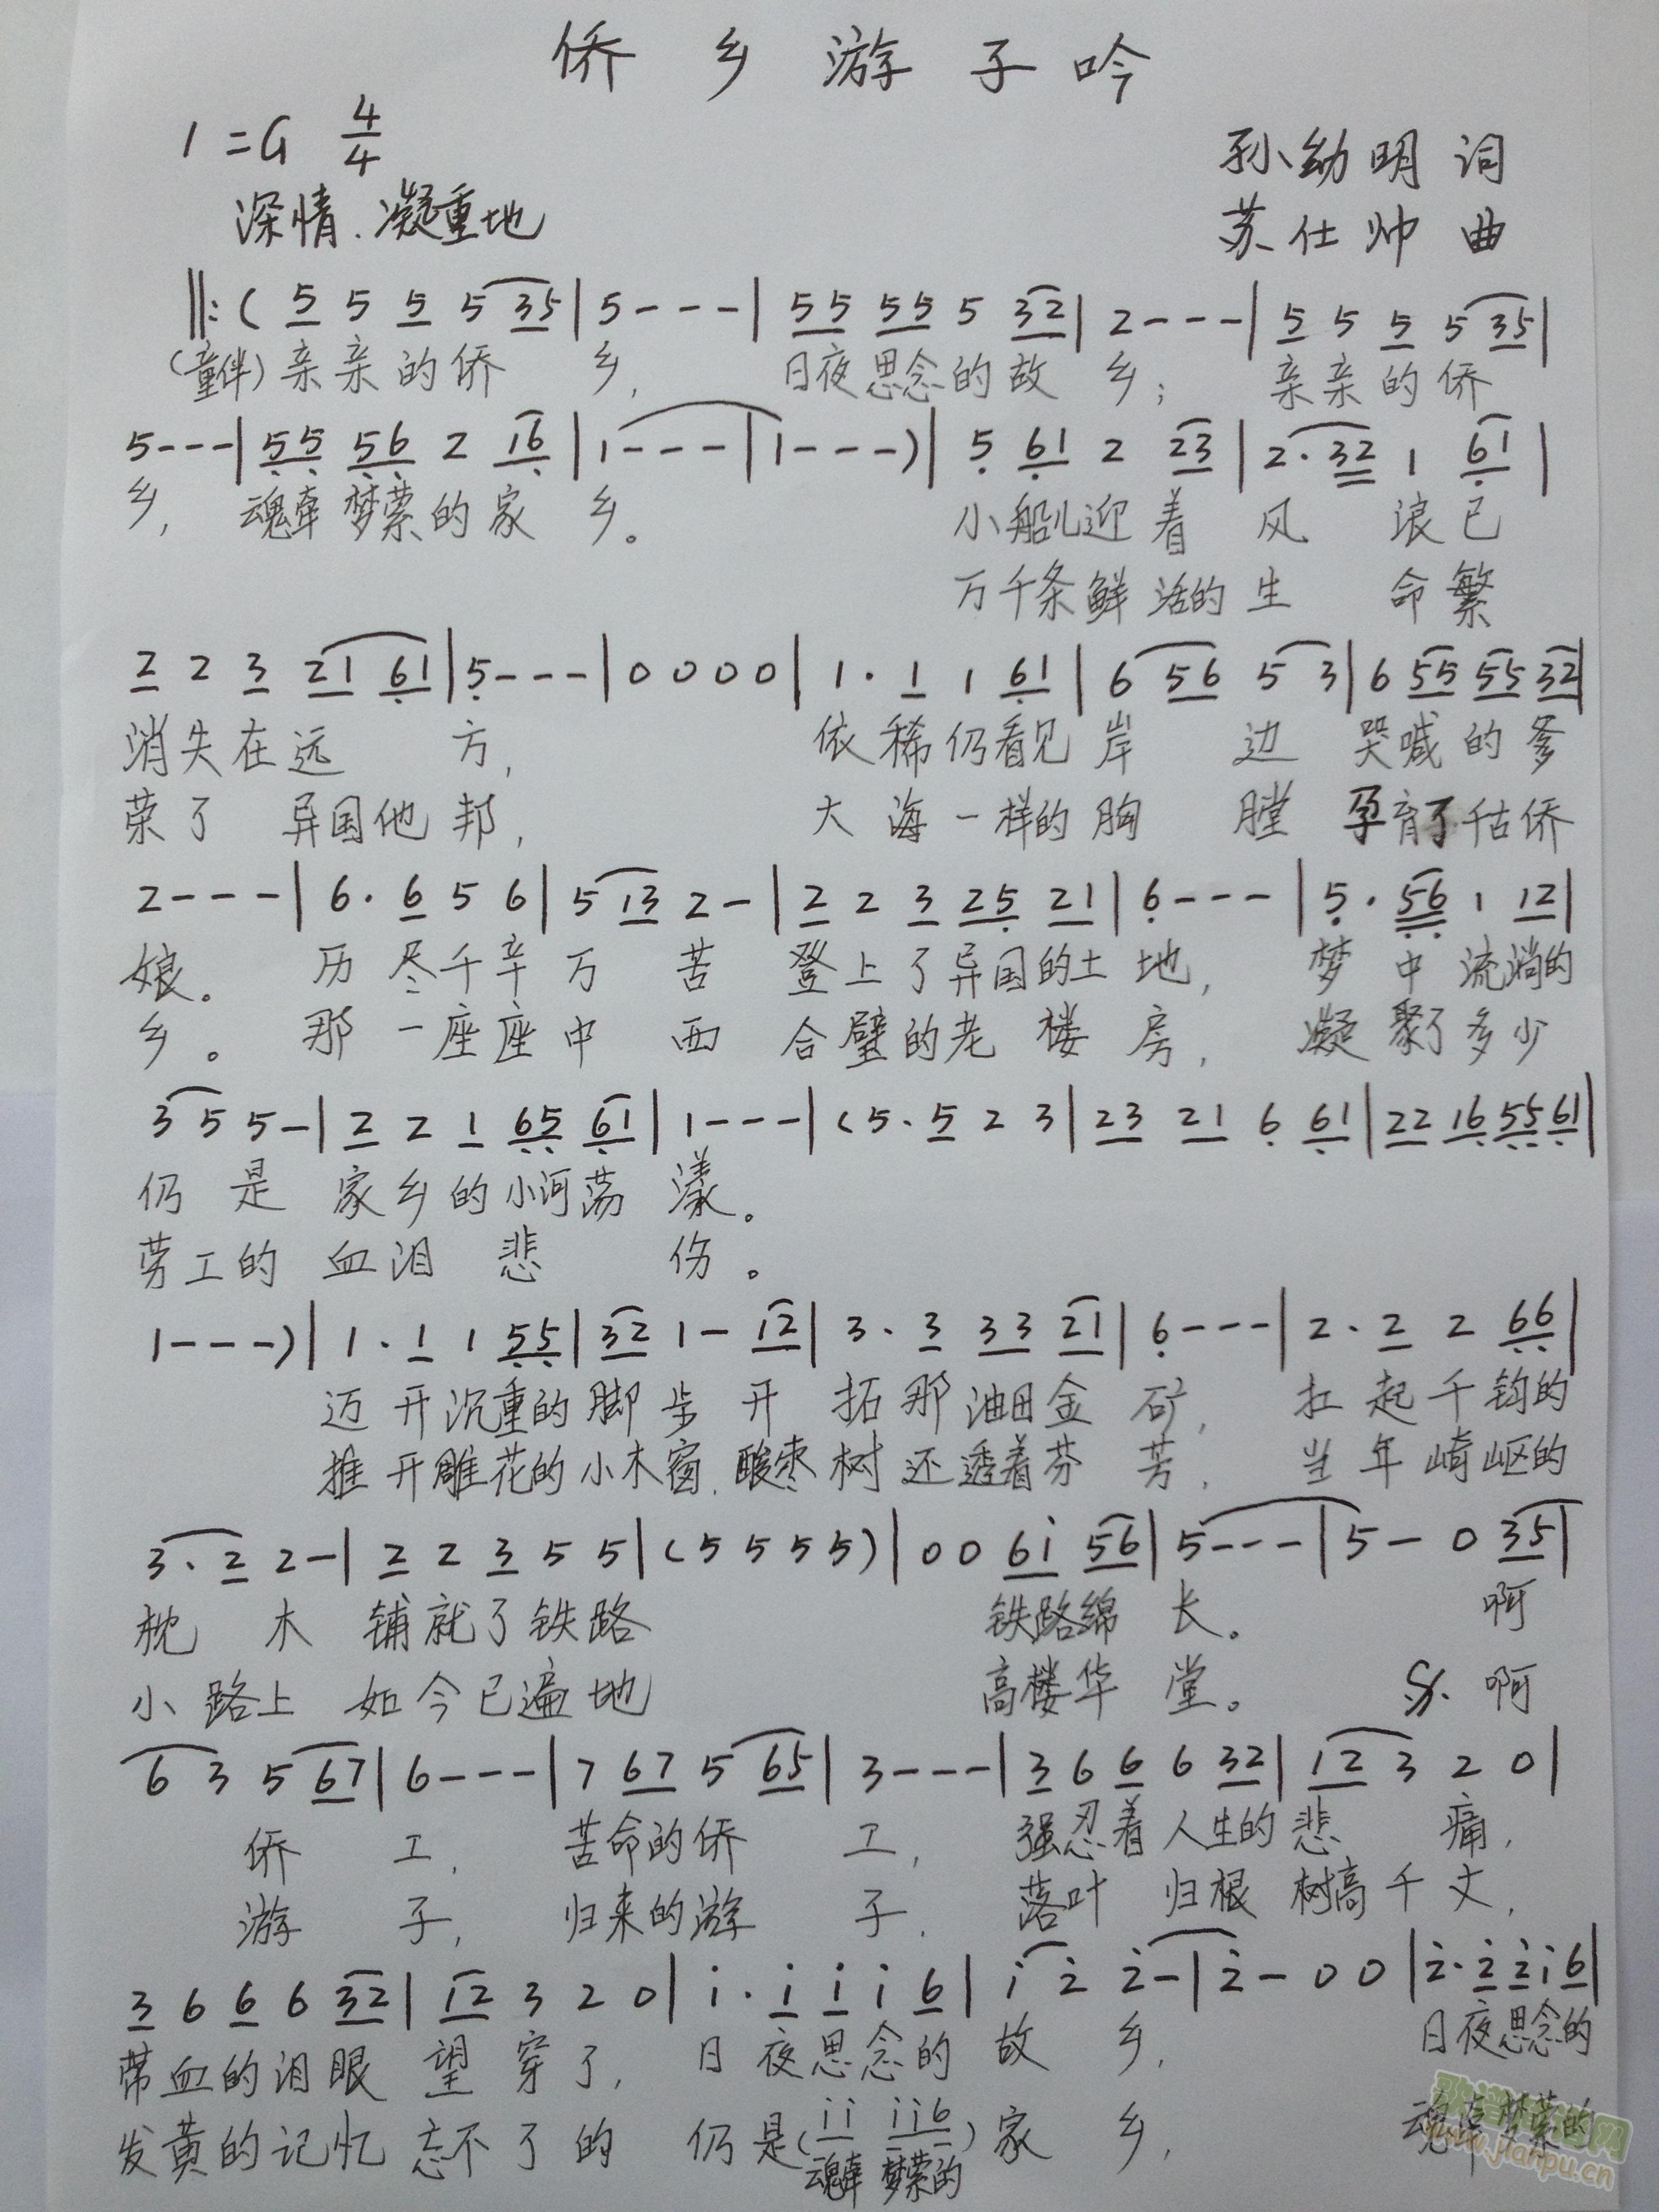 侨乡游子吟
1=G 4/4
孙幼明 词
深情.凝重地
苏仕帅 曲
‖:( 5 5 5 5 35 | 5--- | 55 55 5 32 | 2--- | 5 5 5 5 35 |
(童伴)亲亲的侨 乡, 日夜思念的故 乡; 亲亲的侨
5---| 55 56 2 16 | 1--- | 1---) | 5 61 2 23 | 2·32 1 61 |
乡, 魂牵梦萦的家 乡。 小船儿迎着风 浪已
万千条鲜活的生 命繁
2 2 3 21 61 | 5--- | 0000 | 1·1 1 61 | 6 56 5 3 | 6 55 55 32 |
消失在远 方, 依稀仍看见岸 边 哭喊的爹
荣了 异国他邦, 大海一样的胸 膛 孕育了千古侨
2--- | 6·6 5 6 | 5 13 2- | 2 2 3 25 21 | 6--- | 5·56 1 12 |
娘。 历尽千辛万 苦 登上了异国的土地, 梦中流淌的
乡。 那一座座中 西 合璧的老楼房, 凝聚了多少
3 5 5- | 2 2 1 65 61 | 1--- | (5·5 2 3 | 23 21 6 61 | 22 16 55 61 |
仍是 家乡的小河荡漾。
劳工的 血泪 悲 伤。
1---) | 1·1 1 55 | 32 1- 12 | 3·3 33 21 | 6--- | 2·2 2 66 |
迈开沉重的脚步开拓那油田金 矿, 扛起千钧的
推开雕花的小木窗,酸枣树还透着芬 芳, 当年崎岖的
3·2 2- | 2 2 3 5 5 | (5 5 5 5) | 0 0 6i 56 | 5--- | 5-0 35 |
枕 木 铺就了铁路 铁路绵 长。 啊
小路上 如今已遍地 高楼华 堂。 𝄋 啊
6 3 5 67 | 6--- | 7 67 5 65 | 3--- | 3 6 6 6 32 | 12 3 2 0 |
侨 工, 苦命的侨 工, 强忍着人生的悲 痛,
游 子, 归来的游 子, 落叶 归根 树高千丈,
3 6 6 6 32 | 12 3 2 0 | i·i i i 6 | i 2̇ 2̇- | 2̇-0 0 | 2̇·2̇ 2̇ i 6 |
带血的泪眼 望 穿了, 日夜思念的 故 乡, 日夜思念的
发黄的记忆 忘不了的 仍是(i i i i 6)家 乡, 魂牵梦萦的
魂牵 梦萦的
歌谱简谱网
www.jianpu.cn